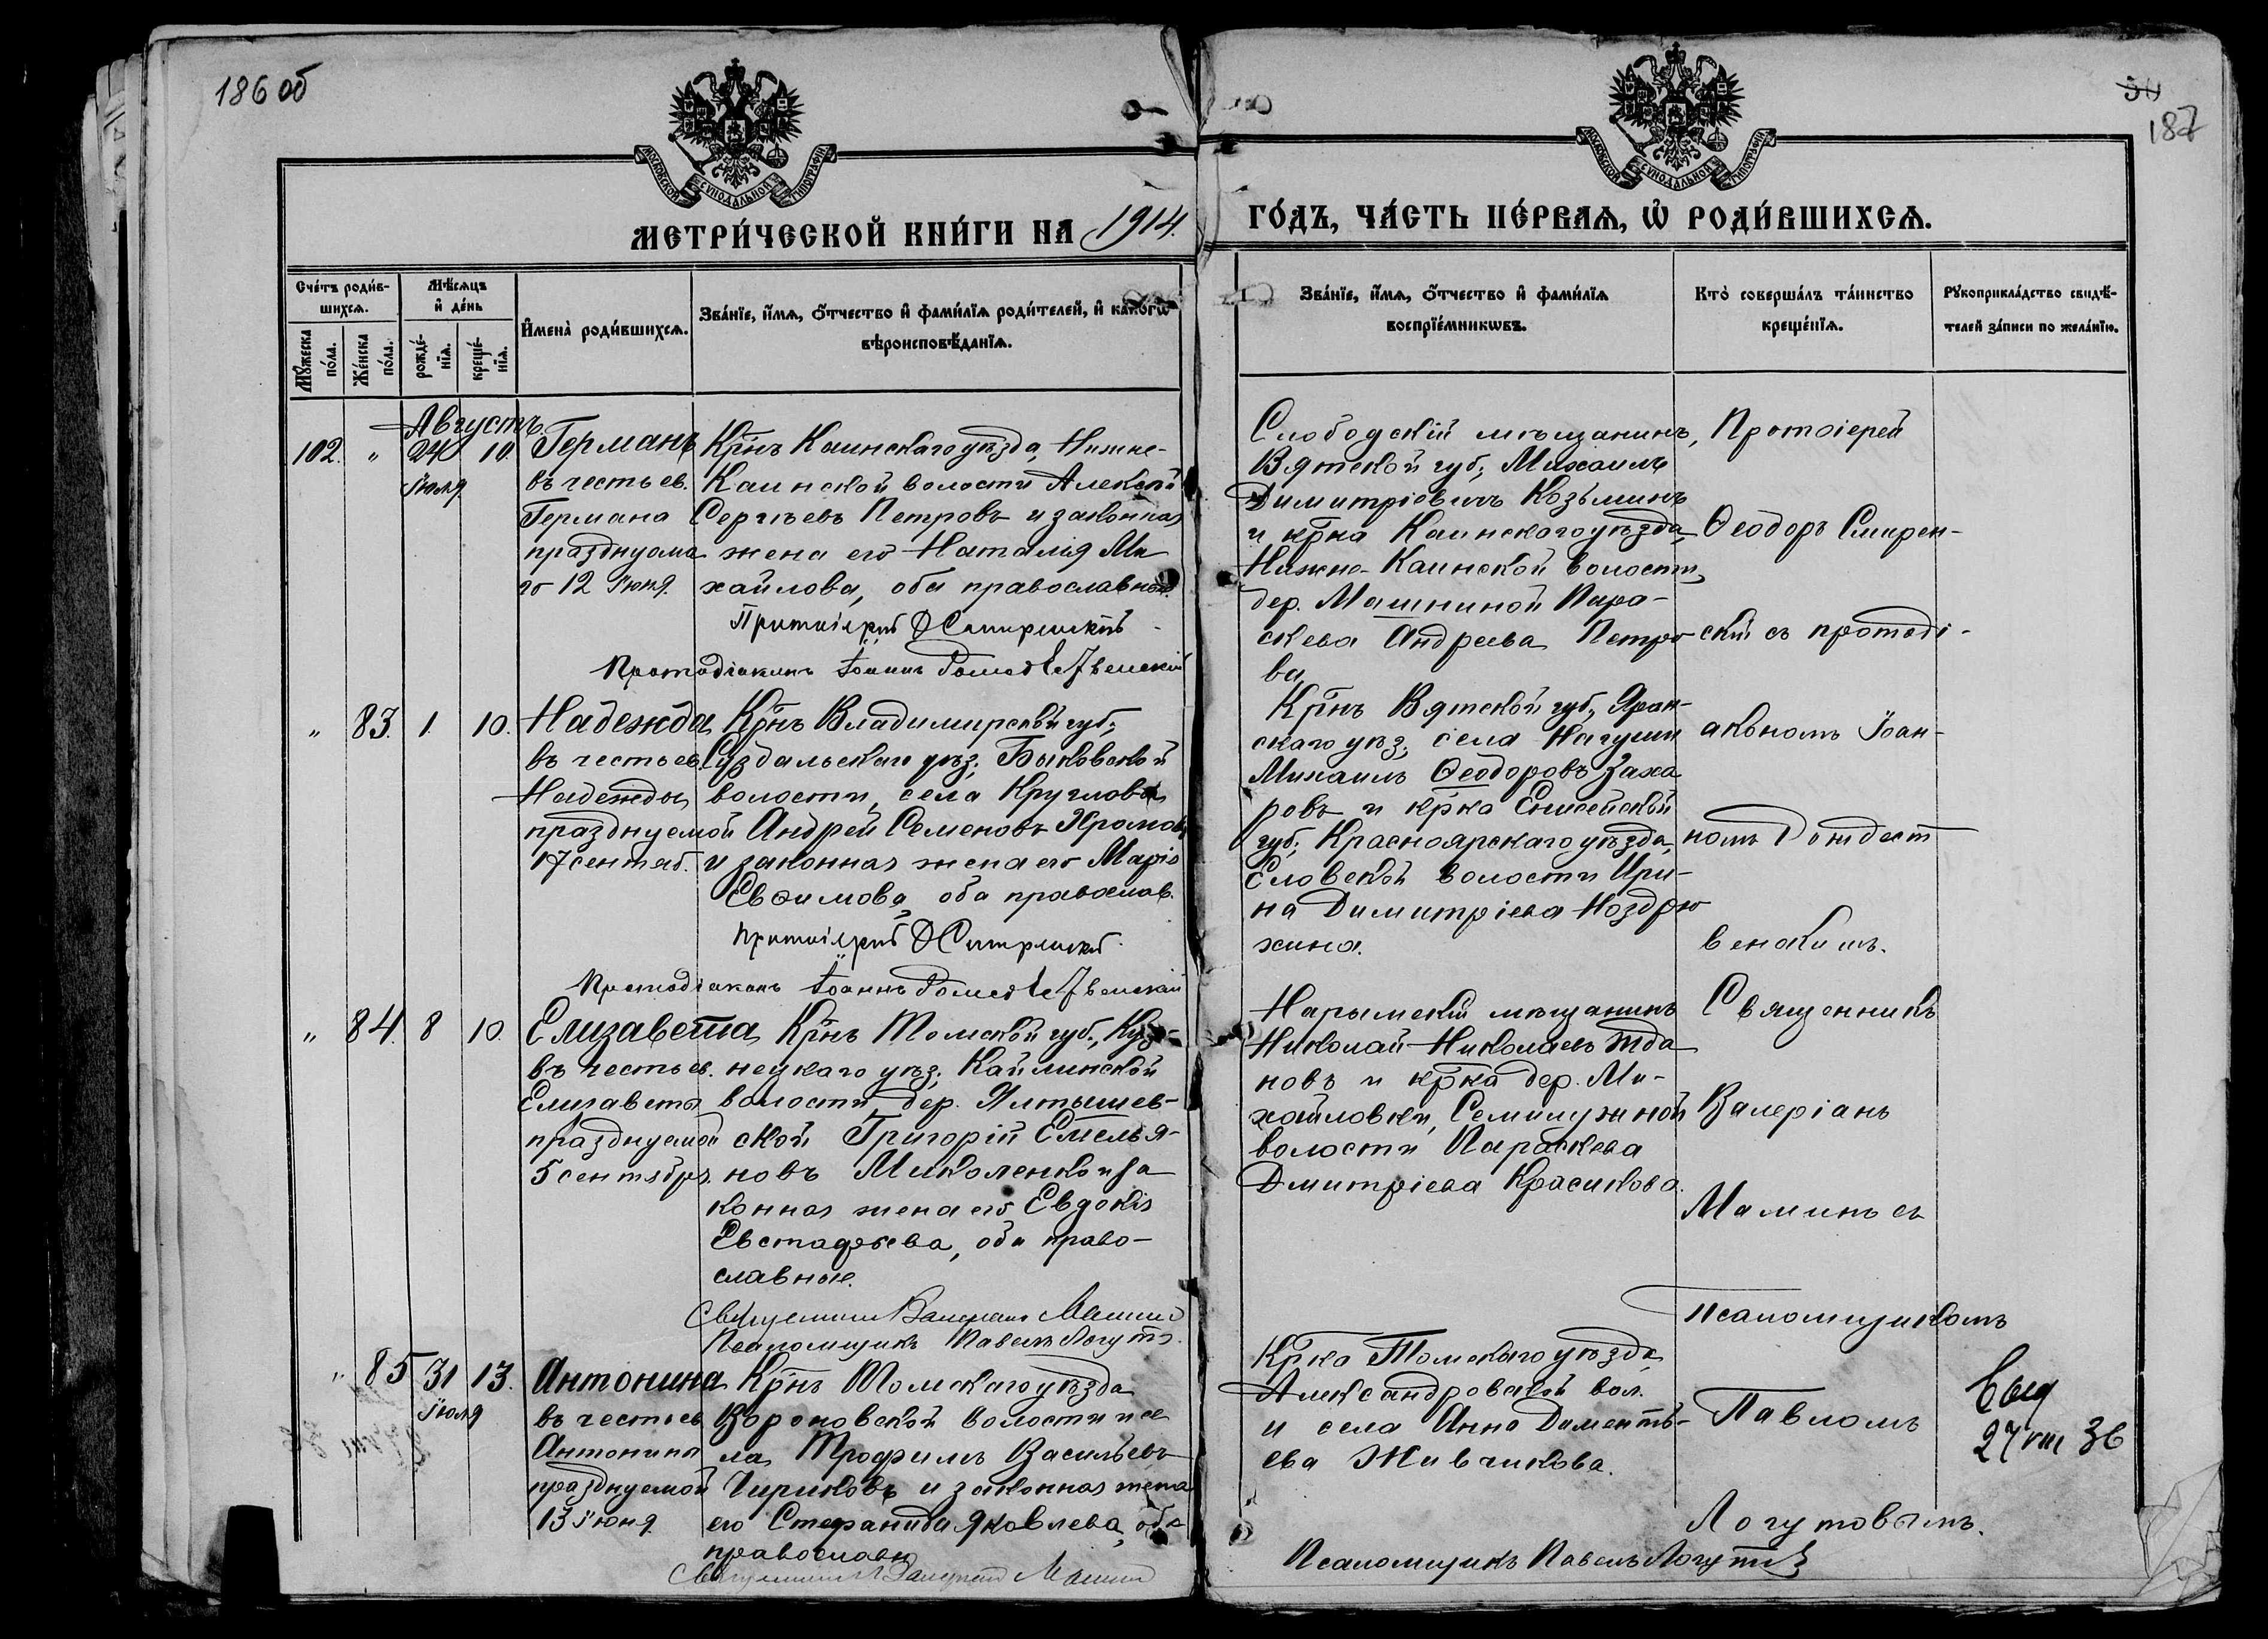 186 об
50
187
МОСКОВСКОЙ СѴНОДАЛЬНОЙ ТИПОГРАФІИ
МОСКОВСКОЙ СѴНОДАЛЬНОЙ ТИПОГРАФІИ
МЕТРИ́ЧЕСКОЙ КНИ́ГИ НА 1914.
ГО́ДЪ, ЧА́СТЬ ПЕ́РВАѦ, Ѡ҆ РОДИ́ВШИХСѦ.
Сче́тъ роди́в-
шихсѧ.
Мꙋ́жеска
по́ла.
Же́нска
по́ла.
Мѣ́сѧцъ
и҆ де́нь
рожде́-
нїѧ.
креще́-
нїѧ.
И҆мена̀ роди́вшихсѧ.
Зва́нїе, и҆́мѧ, ѻ҆́тчество и҆ фами́лїѧ роди́телей, и҆ како́гѡ
вѣроисповѣ́данїѧ.
Зва́нїе, и҆́мѧ, ѻ҆́тчество и҆ фами́лїѧ
воспрїе́мникѡвъ.
Кто̀ соверша́лъ та́инство
креще́нїѧ.
Рꙋкоприкла́дство свидѣ́-
телей за́писи по жела́нїю.
Августъ.
102. " 24 10.
Іюля
Германъ
въ честь св.
Германа
празднуема
го 12 Іюня.
Кр̄нъ Каинскаго уѣзда, Нижне-
Каинской волости Алексѣй
Сергѣевъ Петровъ и законная
жена его Наталія Ми
хайлова, оба православные.
Протоіерей Ѳ Смиренскій
Протодіаконъ Іоаннъ
Слободскій мѣщанинъ,
Вятской губ; Михаилъ
Димитріевичъ Козьминъ
и кр̄ка Каинскаго уѣзда,
Нижне-Каинской волости,
дер. Машниной Пара-
скева Андреева Петро
ва
Протоіерей
Ѳеодоръ Смирен-
скій съ протоді-
акономъ Іоан-
номъ
венскимъ.
" 83. 1. 10.
Надежда
въ честь св.
Надежды
празднуемой
17 сентяб.
Кр̄нъ Владимирской губ;
Суздальскаго уѣз; Быковской
волости, села Круглова
Андрей Семеновъ Хромовъ
и законная жена его Марія
Евѳимова, оба православ.
Протоіерей Ѳ Смиренскій
Протодіаконъ Іоаннъ
Кр̄нъ Вятской губ; Яран-
скаго уѣз; села
Михаилъ Ѳеодоровъ Заха
ровъ и кр̄ка Енисейской
губ; Красноярскаго уѣзда,
Еловской волости Ири-
на Димитріева Ноздрю
хина.
" 84. 8 10.
Елизавета
въ честь св.
Елизаветы
празднуемой
5 сентября.
Кр̄нъ Томской губ., Куз-
нецкаго уѣз; Кайлинской
волости дер. Ялтышев-
ской Григорій Емелья-
новъ Миколенко и за
конная жена его Евдокія
Евстафьева, оба право-
славные.
Священникъ Валеріанъ Маминъ
Псаломщикъ Павелъ Логутовъ.
Нарымскій мѣщанинъ
Николай Николаевъ Жда
новъ и кр̄ка дер. Ми-
хайловки, Семилужной
волости Параскева
Дмитріева Красикова.
Священникъ
Валеріанъ
Маминъ съ
псаломщикомъ
Павломъ
Логутовымъ.
" 85 31 13.
Іюля
Антонина
въ честь св.
Антонины
празднуемой
13 Іюня
Кр̄нъ Томскаго уѣзда
Вороновской волости и се
ла, Трофимъ Васильевъ
Чириковъ и законная жена
его Стефанида Яковлева, оба
православн
Священникъ Валеріанъ Маминъ
Кр̄ка Томскаго уѣзда,
Александровской вол.
и села Анна Даменть-
ева Живчикова.
27 VIII 36
Псаломщикъ Павелъ Логутовъ